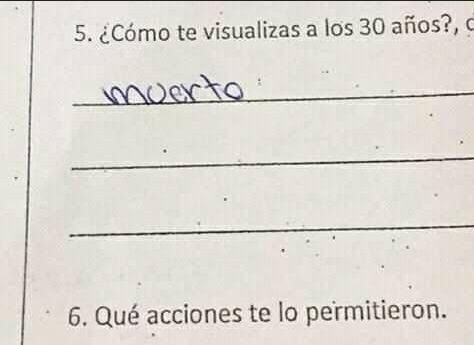 5. ¿Cómo te visualizas a los 30 años?,
muerto
6. Qué acciones te lo permitieron.